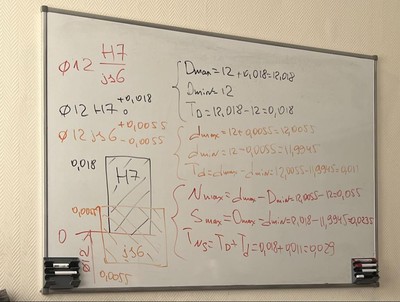 ø12 H7/js6
ø12 H7 +0,018 0
ø12 js6 +0,0055 -0,0055
0,018
H7
0,0055
0
js6
ø12
0,0055
Dmax=12+0,018=12,018
Dmin=12
TD=12,018-12=0,018
dmax=12+0,0055=12,0055
dmin=12-0,0055=11,9945
Td=dmax-dmin=12,0055-11,9945=0,011
Nmax=dmax-Dmin=12,0055-12=0,055
Smax=Dmax-dmin=0,018-11,9945=0,0235
TNS=TD+Td=0,018+0,011=0,029